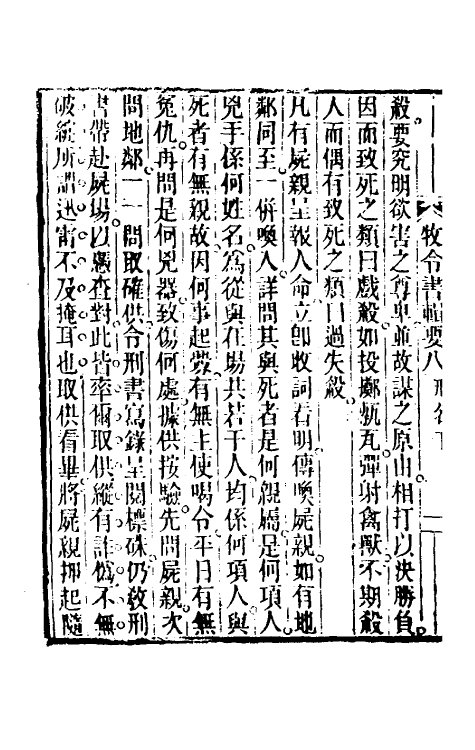 牧令書輯要八 刑名下
殺要究明欲害之尊卑並故謀之原由相打以決勝負
因而致死之類曰戲殺如投擲甎瓦彈射禽獸不期殺
人而偶有致死之類曰過失殺
凡有屍親呈報人命立卽收詞看明傳喚屍親如有地
鄰同至一併喚入詳問其與死者是何親屬是何項人
兇手係何姓名爲從與在場共若干人均係何項人與
死者有無親故因何事起釁有無主使喝令平日有無
冤仇再問是何兇器致傷何處據供按驗先問屍親次
問地鄰一一問取確供令刑書寫錄呈閱標硃仍敎刑
書帶赴屍場以憑查對此皆率爾取供縱有詐僞不無
破綻所謂迅雷不及掩耳也取供看畢將屍親押起隨